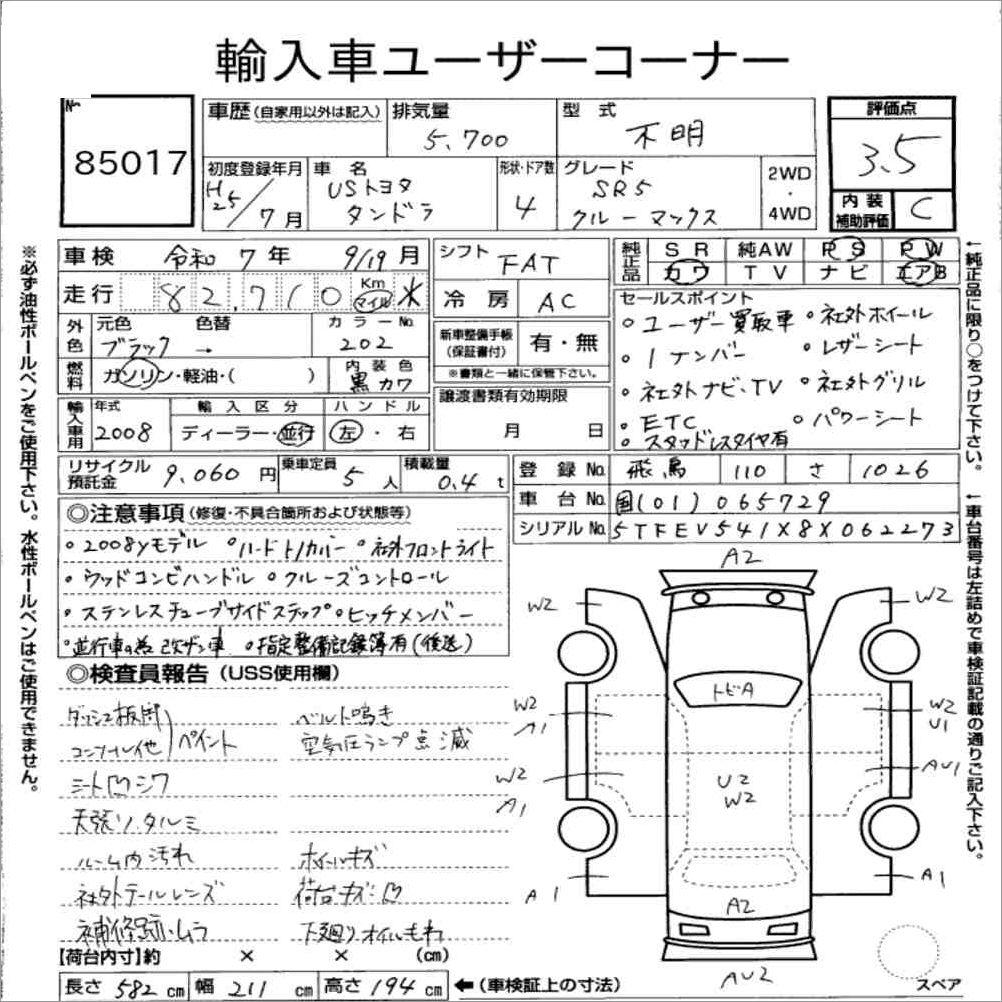 輸入車ユーザーコーナー
No.
85017
車歴(自家用以外は記入)
排気量
5,700
型式
不明
評価点
3.5
内装補助評価
C
初度登録年月
H25/7月
車名
USトヨタ
タンドラ
形状・ドア数
4
グレード
SR5
クルーマックス
2WD
・
4WD
車検 令和7年 9/19月
走行 82,710 Km マイル 米
シフト FAT
冷房 AC
純正品
SR 純AW PS PW
カワ TV ナビ エアB
外色
元色 色替
ブラック →
カラーNo.
202
燃料
ガソリン・軽油・( )
内装色
黒カワ
新車整備手帳(保証書付)
有・無
※書類と一緒に保管下さい。
セールスポイント
○ユーザー買取車 ○社外ホイール
○1ナンバー ○レザーシート
○社外ナビ、TV ○社外グリル
○ETC ○パワーシート
○スタッドレスタイヤ有
輸入車用
年式
2008
輸入区分
ディーラー・並行
ハンドル
左・右
譲渡書類有効期限
月 日
リサイクル預託金 9,060円
乗車定員 5人
積載量 0.4t
登録No. 飛鳥 110 さ 1026
車台No. 国(01)065729
シリアルNo. 5TFEV541X8X062273
◎注意事項(修復・不具合箇所および状態等)
○2008yモデル ○ハードトノカバー ○社外フロントライト
○ウッドコンビハンドル ○クルーズコントロール
○ステンレスチューブサイドステップ ○ヒッチメンバー
○並行車の為改ザン車 ○指定整備記録簿有(後送)
◎検査員報告(USS使用欄)
ダッシュ板周
コンソール他 ペイント
ベルト鳴き
空気圧ランプ点滅
シート凹シワ
天張リ、タルミ
ルーム内汚れ
ホイルキズ
社外テールレンズ
荷台キズ凹
補修跡ムラ
下廻りオイルもれ
【荷台内寸】約 × × (cm)
長さ 582 cm 幅 211 cm 高さ 194 cm
←(車検証上の寸法)
A2
W2
W2
トビA
W2
A1
W2
U1
W2
A1
U2
W2
AU1
A1
A1
A2
AU2
スペア
※必ず油性ボールペンをご使用下さい。水性ボールペンはご使用できません。
←純正品に限り○をつけて下さい。
←車台番号は左詰めで車検証記載の通りご記入下さい。